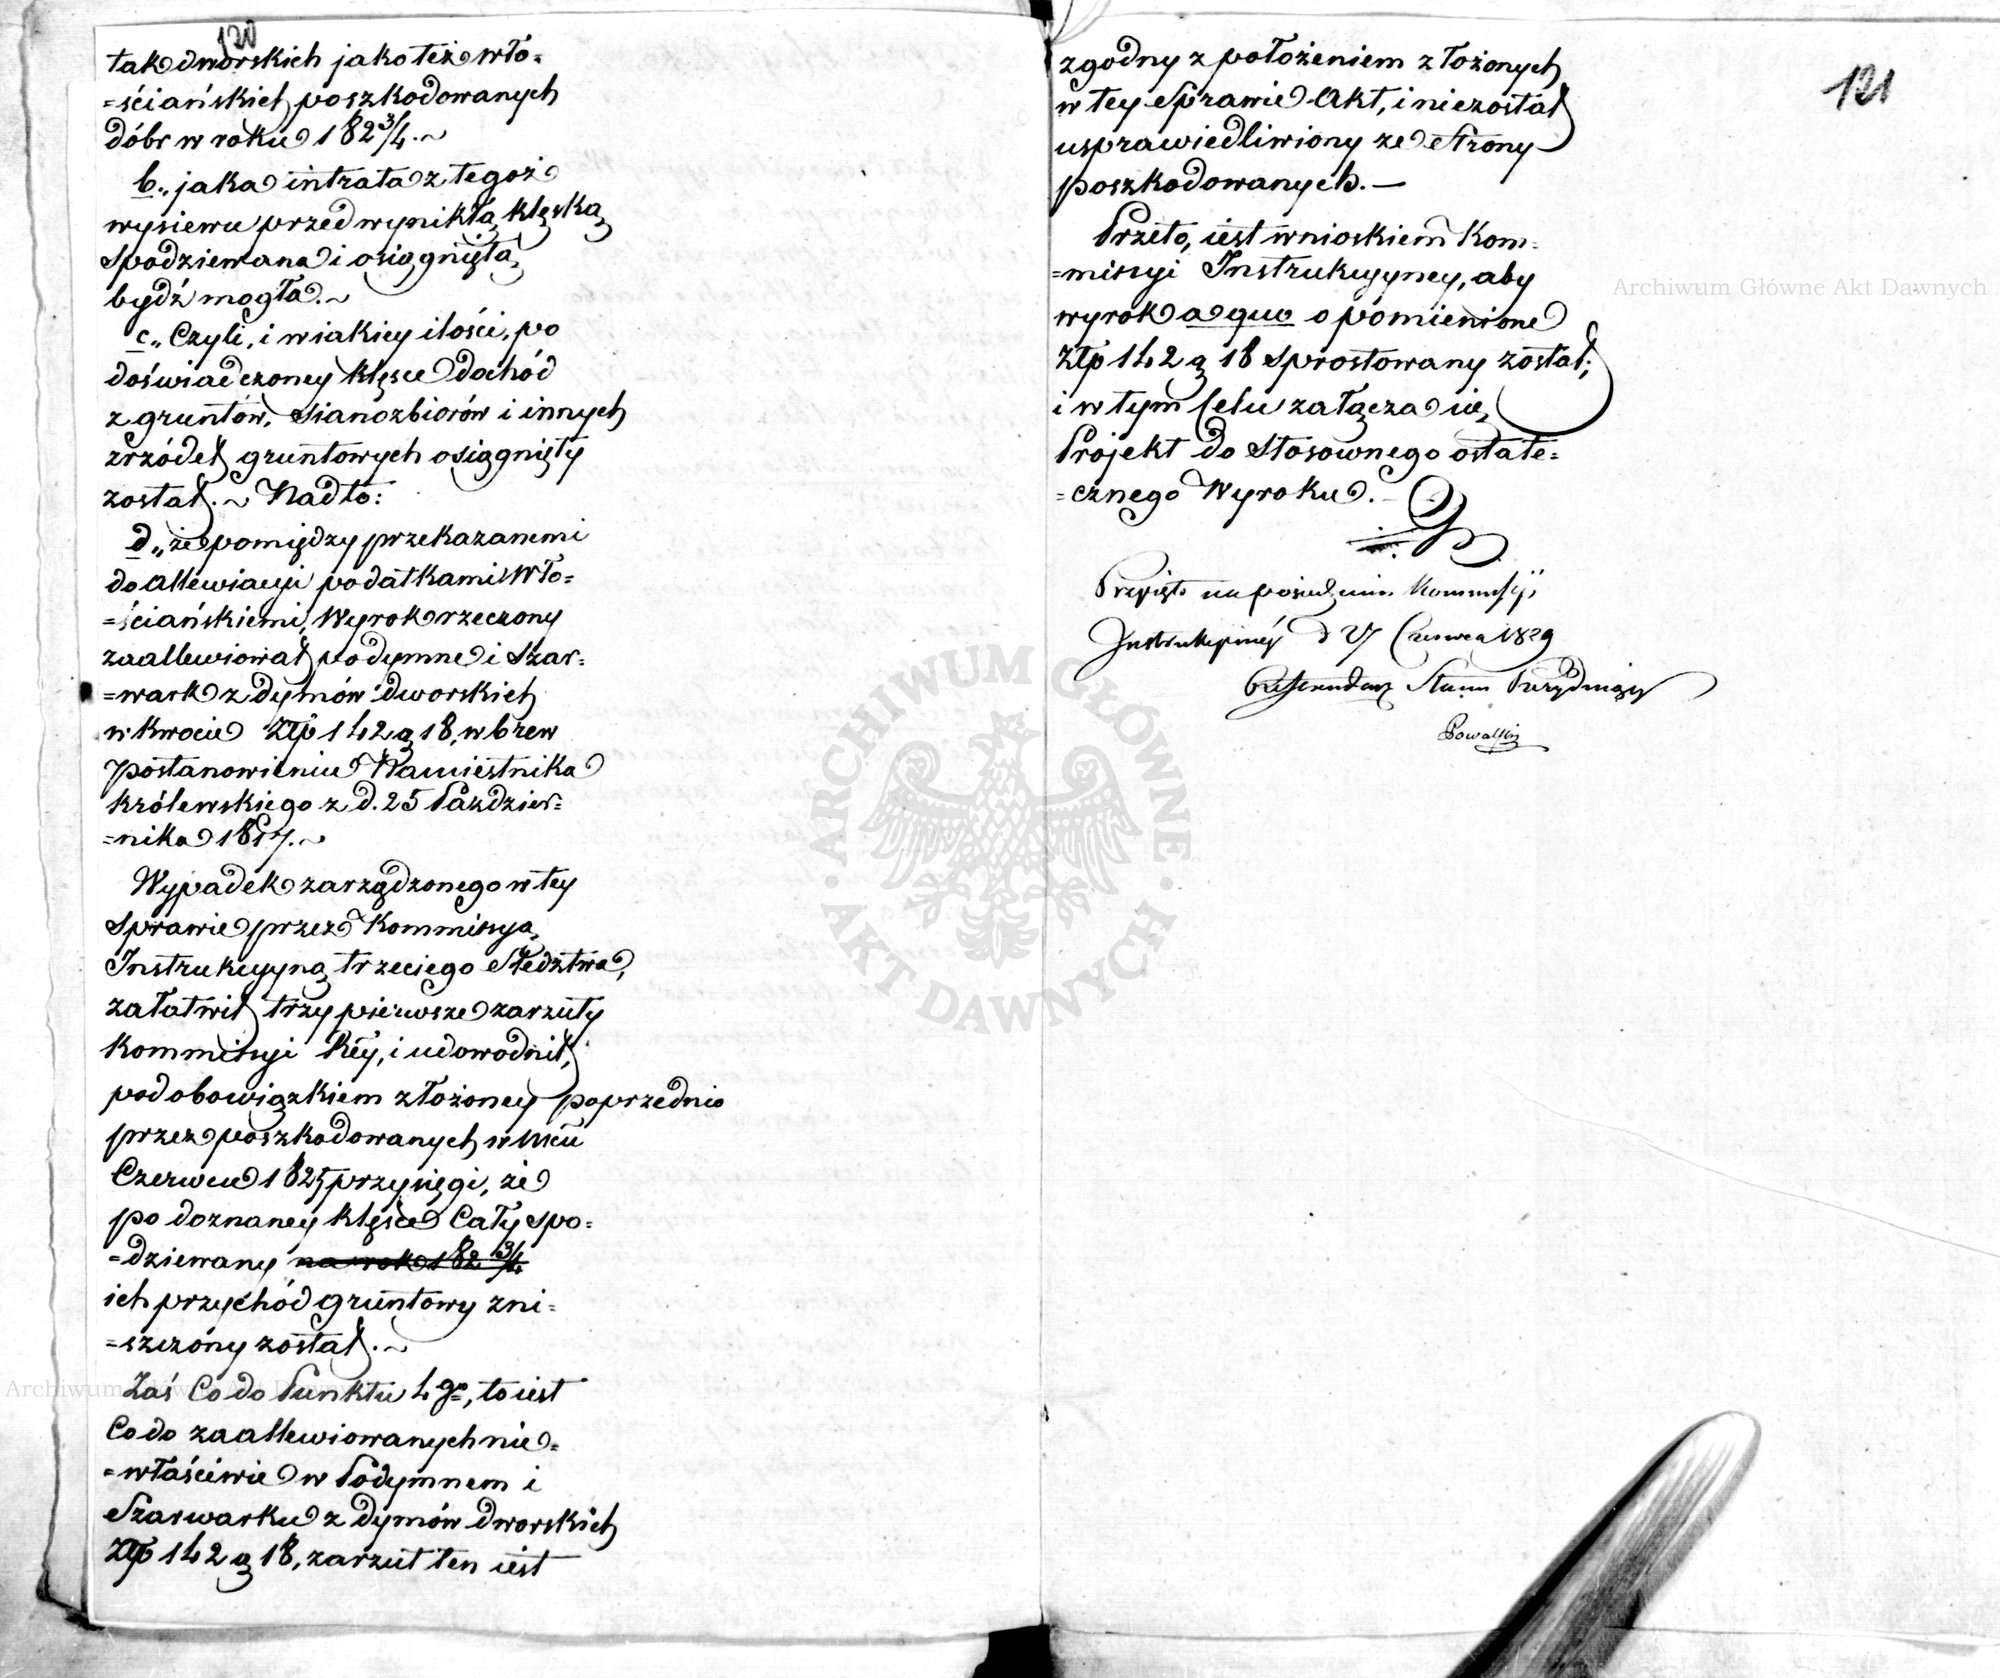 120
tak dworskich jako też wło=
=ściańskich poszkodowanych
dóbr w roku 182¾.~
b„ jaka intrata z tegoż
wysiewu przed wynikłą klęską
spodziewana i osiągnięta
bydź mogła.~
c„ Czyli, i w iakiey ilości, po
doświadczoney klęsce dochód
z gruntów, sianozbiorów i innych
zrzódeł gruntowych osiągnięty
został.~ Nadto:
d„ że pomiędzy przekazanemi
do allewiacyi podatkami Wło=
=ściańskiemi, Wyrok rzeczony
zaallewiował podymne i Szar=
=wark z dymów dworskich
w kwocie Złp 142 g 18, wbrew
postanowieniu Namiestnika
Królewskiego z d. 25 Paździer=
=nika 1817.~
Wypadek zarządzonego w tey
sprawie przez Kommissyą
Instrukcyyną trzeciego Śledztwa,
załatwił trzy pierwsze zarzuty
Kommissyi Rey, i udowodnił,
pod obowiązkiem złożoney poprzednio
przez poszkodowanych w Mcu
Czerwcu 1825 przysięgi, że
po doznaney klęsce Cały spo=
=dziewany na rok 182¾
ich przychód gruntowy zni=
=szczony został.~
Zaś Co do Punktu 4go, to iest
Co do zaallewiowanych nie=
=właściwie w Podymnem i
Szarwarku z dymów dworskich
Złp 142 g 18, zarzut ten iest
121
zgodny z położeniem złożonych
w tey Sprawie Akt, i niezostał
usprawiedliwiony ze Strony
poszkodowanych.—
Przeto, iest wnioskiem Kom=
=missyi Instrukcyyney, aby
wyrok a quo o pomienione
Złp 142 g 18 sprostowany został;
i w tym Celu załącza się
Projekt do stosownego ostate=
=cznego Wyroku.—
Przyjęto na posiedzeniu Kommissyi
Instrukcyinéy d 27 Czerwca 1829
Referendarz Stanu Prezydujący
Archiwum Główne Akt Dawnych
Archiwum Główne Akt Dawnych
ARCHIWUM GŁÓWNE · AKT DAWNYCH ·